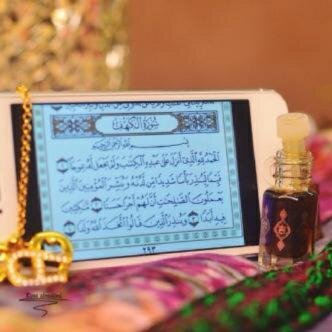 سُورَةُ الكَهْفِ
بِسْمِ اللَّهِ الرَّحْمَٰنِ الرَّحِيمِ
الْحَمْدُ لِلَّهِ الَّذِي أَنزَلَ عَلَىٰ عَبْدِهِ الْكِتَٰبَ وَلَمْ يَجْعَل لَّهُ عِوَجَا ۝١
قَيِّمًا لِّيُنذِرَ بَأْسًا شَدِيدًا مِّن لَّدُنْهُ وَيُبَشِّرَ الْمُؤْمِنِينَ الَّذِينَ
يَعْمَلُونَ الصَّٰلِحَٰتِ أَنَّ لَهُمْ أَجْرًا حَسَنًا ۝٢ مَّٰكِثِينَ
فِيهِ أَبَدًا ۝٣ وَيُنذِرَ الَّذِينَ قَالُوا اتَّخَذَ اللَّهُ وَلَدًا ۝٤
٢٩٣